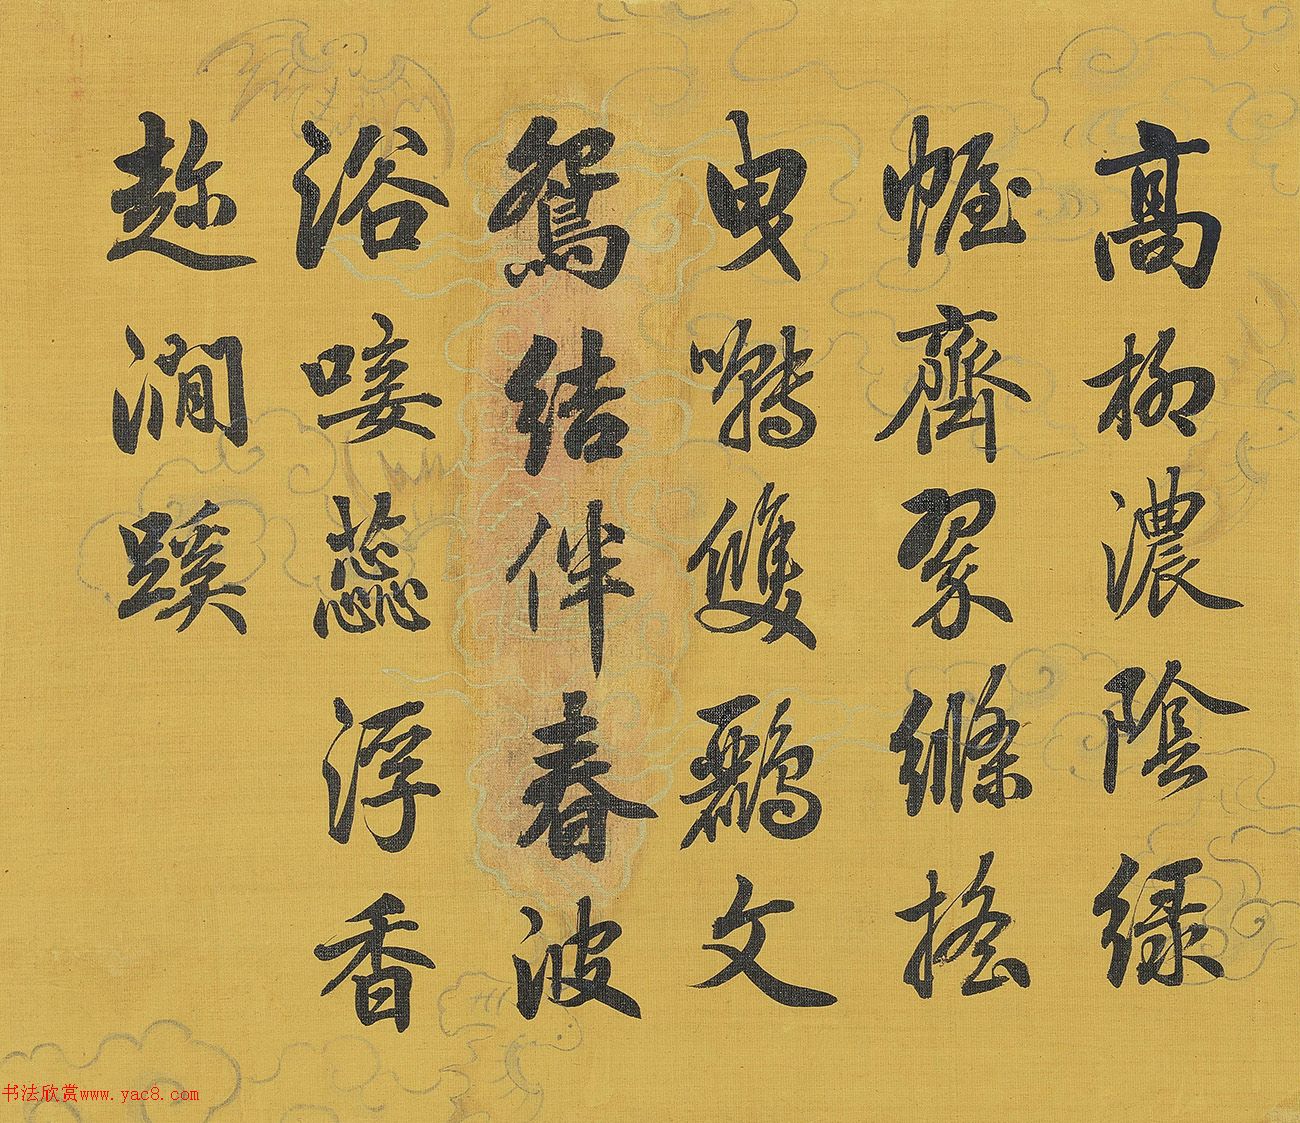 高柳濃陰綠
幄齊翠縧搖
曳囀雙鸝文
鴛結伴春波
浴唼蕊浮香
趂澗蹊
书法欣赏www.yac8.com